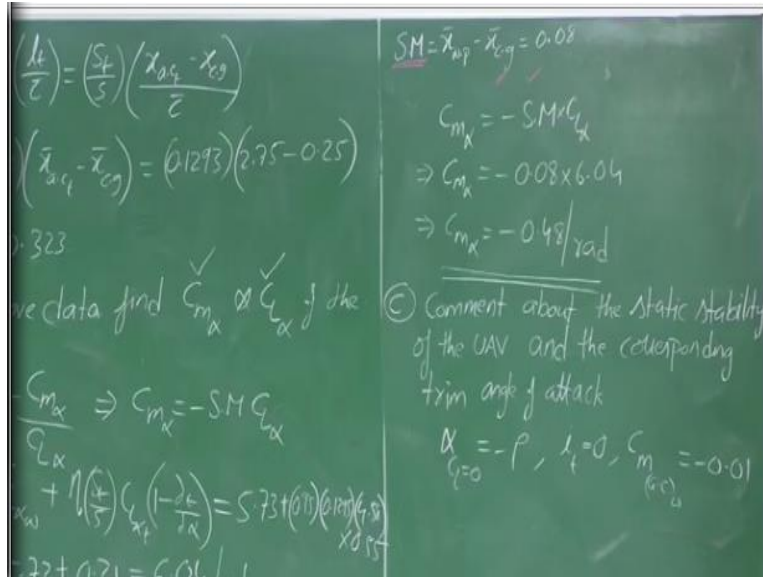 (l_t/c̄) = (S_t/S)((x_a.c_t - x_c.g)/c̄)
)(x̄_a.c_t - x̄_cg) = (0.1293)(2.75-0.25)
.323
ve data find C_mα & C_Lα of the
C_mα/C_Lα ⇒ C_mα = -SM C_Lα
+ η(S_t/S) C_Lαt (1-∂ε/∂α) = 5.73+(0.95)
+ 0.31 = 6.04/
SM = x̄_NP - x̄_cg = 0.08
C_mα = -SM×C_Lα
⇒ C_mα = -0.08×6.04
⇒ C_mα = -0.48/rad
Ⓒ Comment about the static stability
of the UAV and the corresponding
trim angle of attack
α_L=0 = -1°, i_t=0, C_m(a.c)_w = -0.01